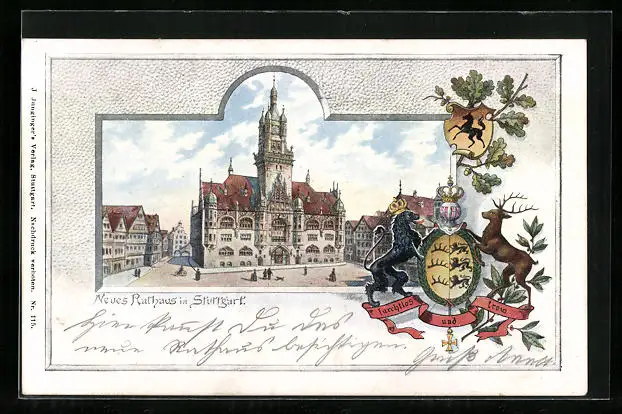 J. Junginger's Verlag, Stuttgart. Nachdruck verboten. Nr. 115.
Neues Rathaus in Stuttgart.
Furchtlos und trew
Hier kanst Du das
neue Rathaus besichtigen.
Gruß